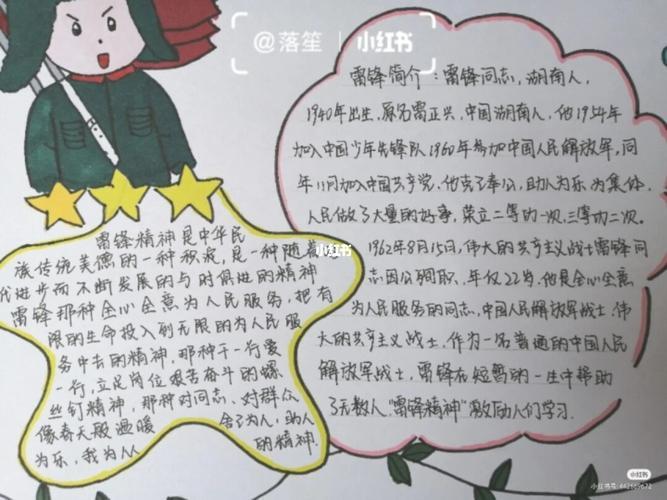 @落笙 | 小红书
雷锋简介：雷锋同志，湖南人，
1940年出生，原名雷正兴，中国湖南人，他1954年
加入中国少年先锋队1960年参加中国人民解放军，同
年11月加入中国共产党，他克己奉公，助人为乐，为集体，
人民做了大量的好事，荣立二等功一次，三等功二次。
1962年8月15日，伟大的共产主义战士雷锋同
志因公殉职，年仅22岁，他是全心全意
为人民服务的同志，中国人民解放军战士，伟
大的共产主义战士，作为一名普通的中国人民
解放军战士，雷锋在短暂的一生中帮助
了无数人，"雷锋精神"激励人们学习.
雷锋精神是中华民
族传统美德的一种积淀，是一种随着
代进步而不断发展的与时俱进的精神
雷锋那种全心全意为人民服务，把有
限的生命投入到无限的为人民服
务中去的精神，那种干一行爱
一行，立足岗位艰苦奋斗的螺
丝钉精神，那种对同志、对群众
像春天般温暖 舍己为人，助人
为乐，我为人人 的精神.
小红书
小红书
小红书号:442169672